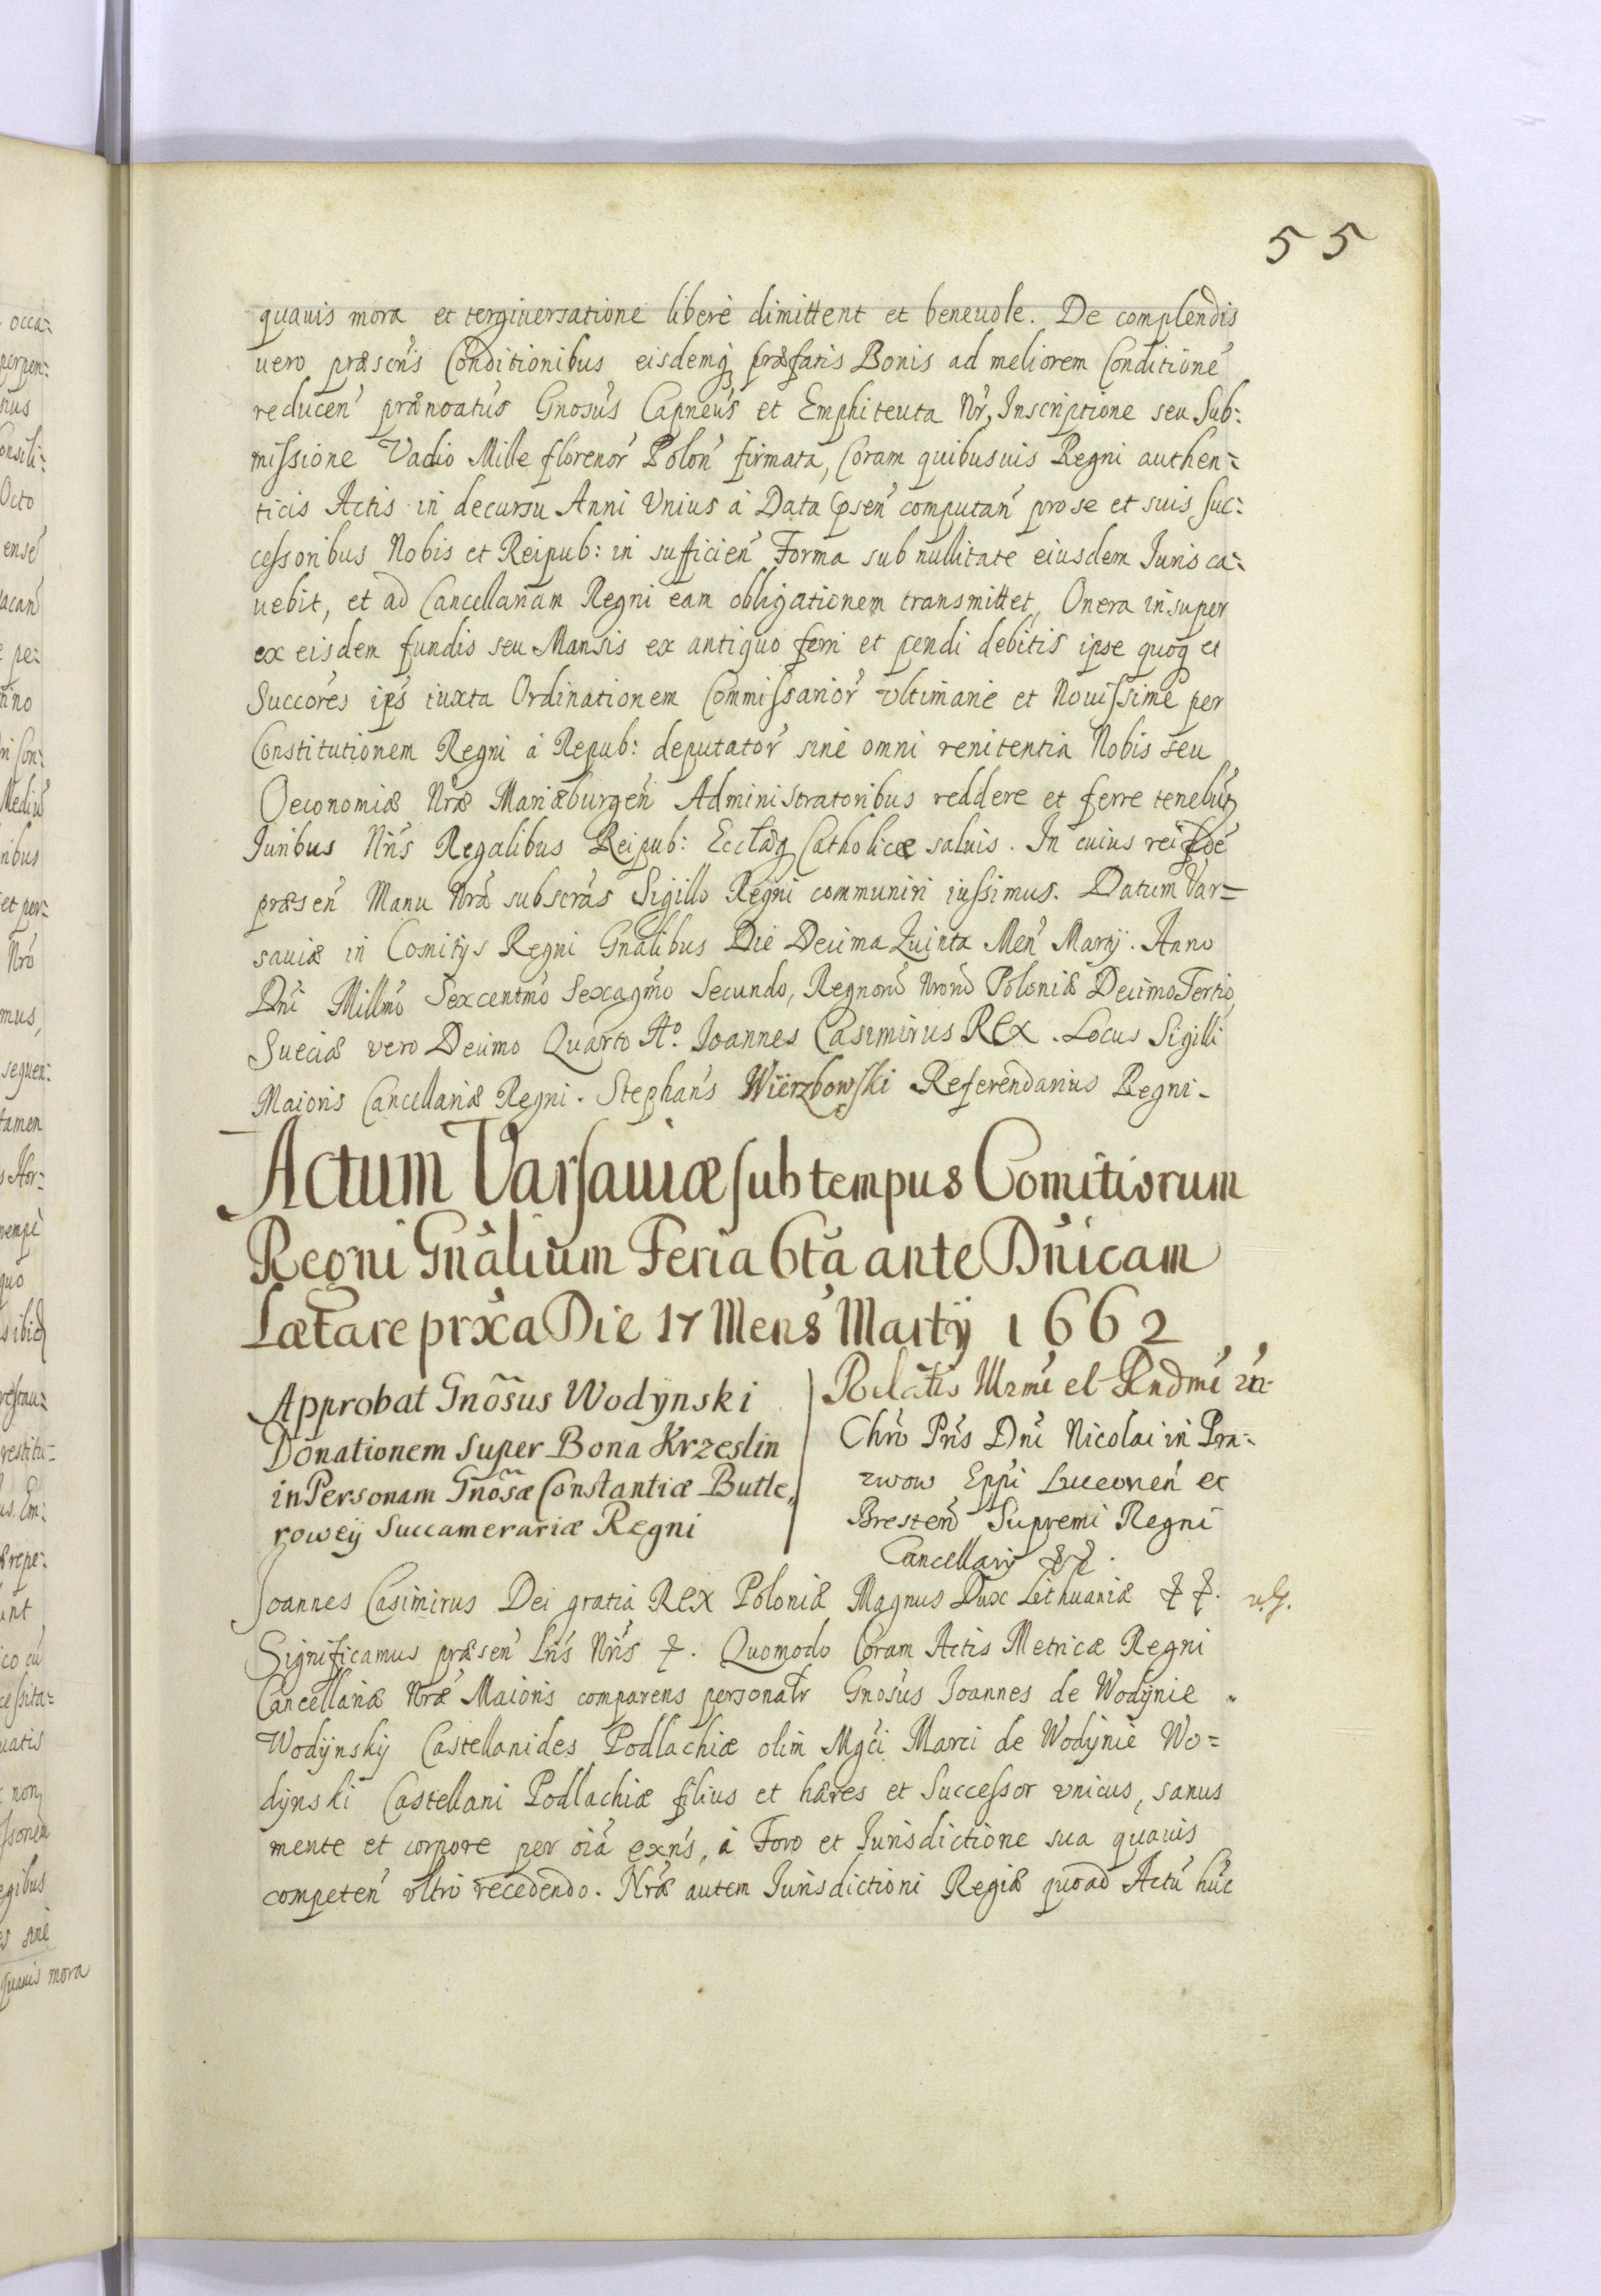 55
quauis mora et tergiuersatione liberè dimittent et beneuole. De complendis
uero præsen͂s Conditionibus eisdemq̨ præfatis Bonis ad meliorem Conditione͂
reducen͂ prænoatus Gnosus Capneus et Emphiteuta Nr̃, Inscriptione seu Sub:
missione Vadio Mille florenor͂ Polon͂ firmata, Coram quibusuis Regni authen=
ticis Actis in decursu Anni Vnius à Data psen͂ computan͂ pro se et suis suc:
cessoribus Nobis et Reipub: in sufficien͂ Forma sub nullitate eiusdem Iuris ca=
uebit, et ad Cancellariam Regni eam obligationem transmittet, Onera insuper
ex eisdem fundis seu Mansis ex antiquo ferri et pendi debitis ipse quoq̨ et
Succores ips͂ iuxta Ordinationem Commissarior͂ vltimariè et Nouissime per
Constitutionem Regni à Repub: deputator͂ sinè omni renitentia Nobis seu
Oeconomiæ Nræ Mariæburgen͂ Administratoribus reddere et ferre tenebu͂t
Iuribus Nr͂is Regalibus Reipub: Eccl͂æq̨ Catholicæ saluis. In cuius rei fide͂
præsen͂ Manu Nra͂ subscra͂s Sigillo Regni communiri iussimus. Datum Var=
sauiæ in Comitijs Regni Gnalibus Die Decima Quinta Men͂ Martij. Anno
Dn͂i Millm͂o Sexcentm͂o Sexagm͂o Secundo, Regnor͂ Nror͂ Poloniæ Decimo Tertio,
Sueciæ vero Decimo Quarto Ao. Ioannes Casimirus REX. Locus Sigilli
Maioris Cancellariæ Regni. Stephan͂s Wierzbowski Referendarius Regni-
Actum Varsauiæ sub tempus Comitiorum
Regni Gnâlium Feria 6ta ante Dn͂icam
Lætare prx͂a Die 17 Mens͂ Martij 1662
Approbat Gnõsus Wodynski
Donationem super Bona Krzeslin
in Personam Gnõsæ Constantiæ Butle,
rowey Succamerariæ Regni
Relatis Illrmi et Rndmi in
Chro͂ Pris͂ Dn͂i Nicolai in Pra=
zwow Eppi͂ Luceorien͂ et
Bresten͂ Supremi Regni
Cancellarij &c.
Joannes Casimirus Dei gratia REX Poloniæ Magnus Dux Lithuaniæ & &.
Significamus præsen͂ Lris͂ Nris͂ &. Quomodo Coram Actis Metricæ Regni
Cancellariæ Nræ͂ Maioris comparens personalr͂ Gnosus Joannes de Wodynie
Wodynskij Castellanides Podlachiæ olim Mgci Marci de Wodynie Wo=
dynski Castellani Podlachiæ filius et hæres et Successor vnicus, sanus
mente et corpore per oia͂ exn͂s, à Foro et Iurisdictione sua quauis
competen͂ vltro recedendo. Nræ͂ autem Iurisdictioni Regiæ quoad Actu͂ hu͂c